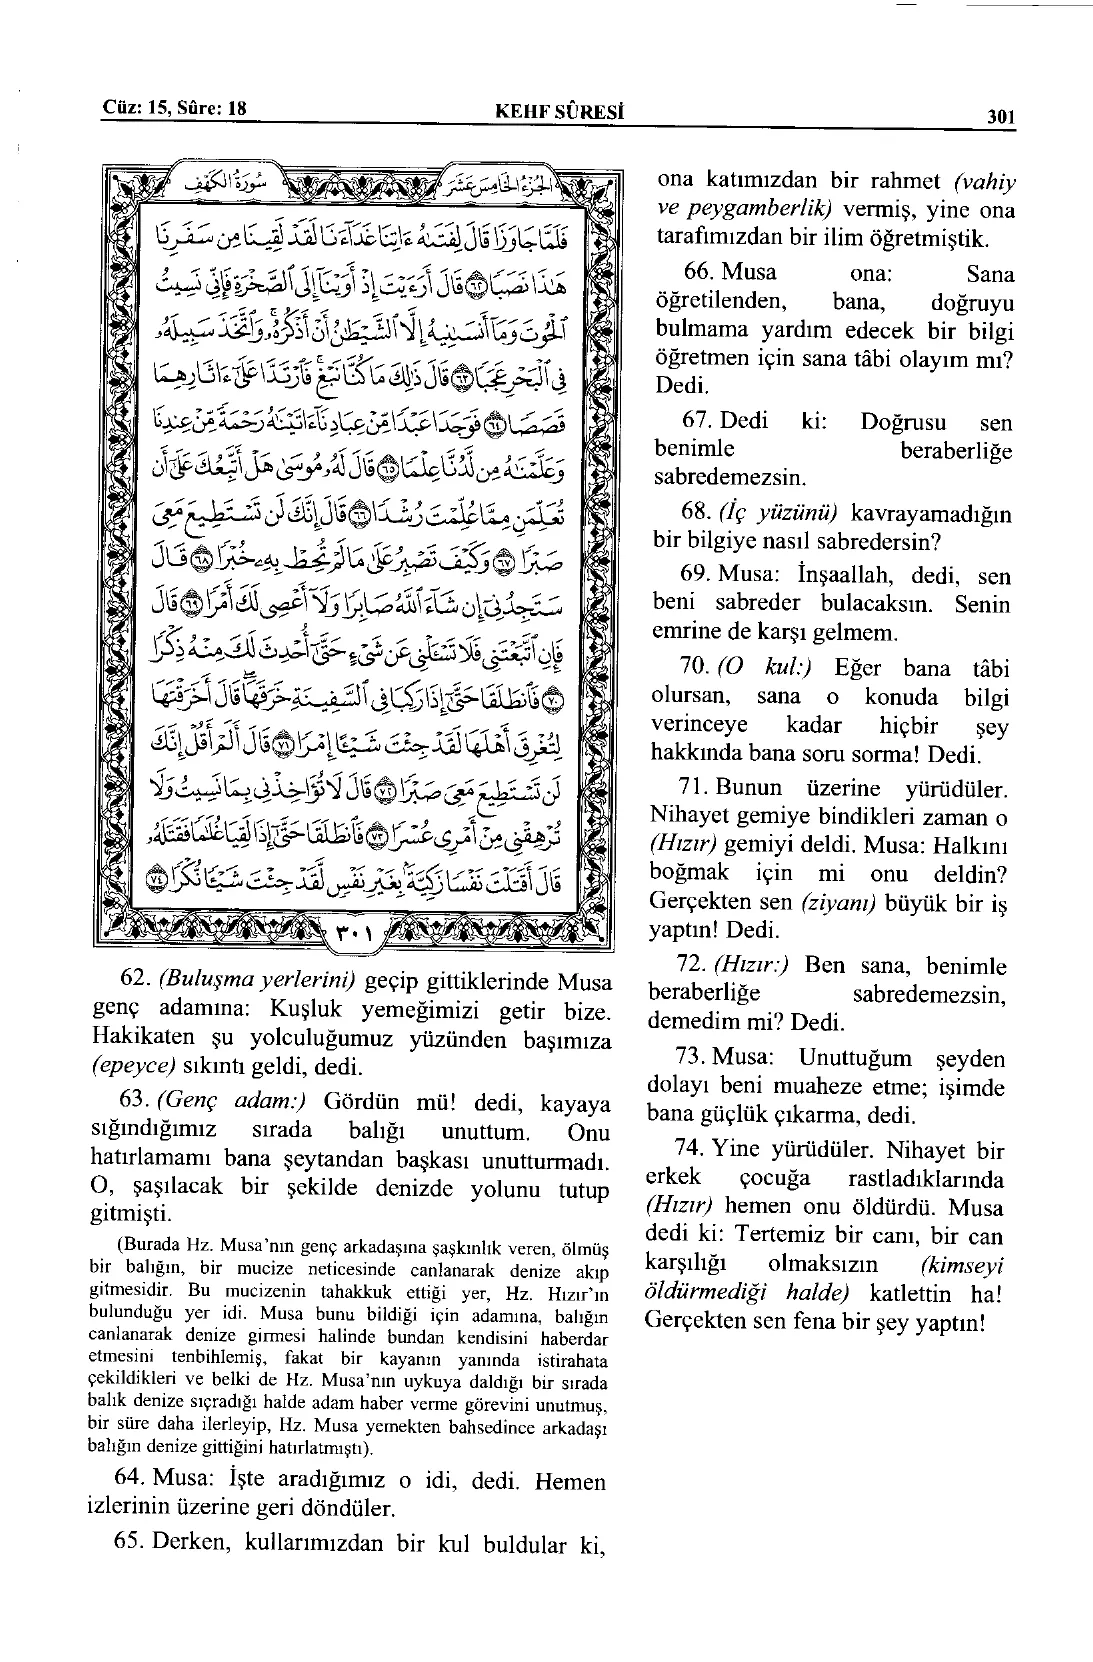 Cüz: 15, Sûre: 18
KEHF SÛRESİ
301
سُورَةُ الكَهْفِ
الجُزْءُ الخَامِسَ عَشَرَ
فَلَمَّا جَاوَزَا قَالَ لِفَتٰىهُ ءَاتِنَا غَدَآءَنَا لَقَدْ لَقِينَا مِن سَفَرِنَا
هَٰذَا نَصَبًا ٦٢ قَالَ أَرَءَيْتَ إِذْ أَوَيْنَآ إِلَى ٱلصَّخْرَةِ فَإِنِّى نَسِيتُ
ٱلْحُوتَ وَمَآ أَنسَىٰنِيهُ إِلَّا ٱلشَّيْطَٰنُ أَنْ أَذْكُرَهُۥ وَٱتَّخَذَ سَبِيلَهُۥ
فِى ٱلْبَحْرِ عَجَبًا ٦٣ قَالَ ذَٰلِكَ مَا كُنَّا نَبْغِ فَٱرْتَدَّا عَلَىٰٓ ءَاثَارِهِمَا
قَصَصًا ٦٤ فَوَجَدَا عَبْدًا مِّنْ عِبَادِنَآ ءَاتَيْنَٰهُ رَحْمَةً مِّنْ عِندِنَا
وَعَلَّمْنَٰهُ مِن لَّدُنَّا عِلْمًا ٦٥ قَالَ لَهُۥ مُوسَىٰ هَلْ أَتَّبِعُكَ عَلَىٰٓ أَن
تُعَلِّمَنِ مِمَّا عُلِّمْتَ رُشْدًا ٦٦ قَالَ إِنَّكَ لَن تَسْتَطِيعَ مَعِىَ
صَبْرًا ٦٧ وَكَيْفَ تَصْبِرُ عَلَىٰ مَا لَمْ تُحِطْ بِهِۦ خُبْرًا ٦٨ قَالَ
سَتَجِدُنِىٓ إِن شَآءَ ٱللَّهُ صَابِرًا وَلَآ أَعْصِى لَكَ أَمْرًا ٦٩ قَالَ
فَإِنِ ٱتَّبَعْتَنِى فَلَا تَسْـَٔلْنِى عَن شَىْءٍ حَتَّىٰٓ أُحْدِثَ لَكَ مِنْهُ ذِكْرًا
٧٠ فَٱنطَلَقَا حَتَّىٰٓ إِذَا رَكِبَا فِى ٱلسَّفِينَةِ خَرَقَهَا قَالَ أَخَرَقْتَهَا
لِتُغْرِقَ أَهْلَهَا لَقَدْ جِئْتَ شَيْـًٔا إِمْرًا ٧١ قَالَ أَلَمْ أَقُلْ إِنَّكَ
لَن تَسْتَطِيعَ مَعِىَ صَبْرًا ٧٢ قَالَ لَا تُؤَاخِذْنِى بِمَا نَسِيتُ وَلَا
تُرْهِقْنِى مِنْ أَمْرِى عُسْرًا ٧٣ فَٱنطَلَقَا حَتَّىٰٓ إِذَا لَقِيَا غُلَٰمًا فَقَتَلَهُۥ
قَالَ أَقَتَلْتَ نَفْسًا زَكِيَّةً بِغَيْرِ نَفْسٍ لَّقَدْ جِئْتَ شَيْـًٔا نُّكْرًا ٧٤
٣٠١
62. (Buluşma yerlerini) geçip gittiklerinde Musa
genç adamına: Kuşluk yemeğimizi getir bize.
Hakikaten şu yolculuğumuz yüzünden başımıza
(epeyce) sıkıntı geldi, dedi.
63. (Genç adam:) Gördün mü! dedi, kayaya
sığındığımız sırada balığı unuttum. Onu
hatırlamamı bana şeytandan başkası unutturmadı.
O, şaşılacak bir şekilde denizde yolunu tutup
gitmişti.
(Burada Hz. Musa’nın genç arkadaşına şaşkınlık veren, ölmüş
bir balığın, bir mucize neticesinde canlanarak denize akıp
gitmesidir. Bu mucizenin tahakkuk ettiği yer, Hz. Hızır’ın
bulunduğu yer idi. Musa bunu bildiği için adamına, balığın
canlanarak denize girmesi halinde bundan kendisini haberdar
etmesini tenbihlemiş, fakat bir kayanın yanında istirahata
çekildikleri ve belki de Hz. Musa’nın uykuya daldığı bir sırada
balık denize sıçradığı halde adam haber verme görevini unutmuş,
bir süre daha ilerleyip, Hz. Musa yemekten bahsedince arkadaşı
balığın denize gittiğini hatırlatmıştı).
64. Musa: İşte aradığımız o idi, dedi. Hemen
izlerinin üzerine geri döndüler.
65. Derken, kullarımızdan bir kul buldular ki,
ona katımızdan bir rahmet (vahiy
ve peygamberlik) vermiş, yine ona
tarafımızdan bir ilim öğretmiştik.
66. Musa ona: Sana
öğretilenden, bana, doğruyu
bulmama yardım edecek bir bilgi
öğretmen için sana tâbi olayım mı?
Dedi.
67. Dedi ki: Doğrusu sen
benimle beraberliğe
sabredemezsin.
68. (İç yüzünü) kavrayamadığın
bir bilgiye nasıl sabredersin?
69. Musa: İnşaallah, dedi, sen
beni sabreder bulacaksın. Senin
emrine de karşı gelmem.
70. (O kul:) Eğer bana tâbi
olursan, sana o konuda bilgi
verinceye kadar hiçbir şey
hakkında bana soru sorma! Dedi.
71. Bunun üzerine yürüdüler.
Nihayet gemiye bindikleri zaman o
(Hızır) gemiyi deldi. Musa: Halkını
boğmak için mi onu deldin?
Gerçekten sen (ziyanı) büyük bir iş
yaptın! Dedi.
72. (Hızır:) Ben sana, benimle
beraberliğe sabredemezsin,
demedim mi? Dedi.
73. Musa: Unuttuğum şeyden
dolayı beni muaheze etme; işimde
bana güçlük çıkarma, dedi.
74. Yine yürüdüler. Nihayet bir
erkek çocuğa rastladıklarında
(Hızır) hemen onu öldürdü. Musa
dedi ki: Tertemiz bir canı, bir can
karşılığı olmaksızın (kimseyi
öldürmediği halde) katlettin ha!
Gerçekten sen fena bir şey yaptın!